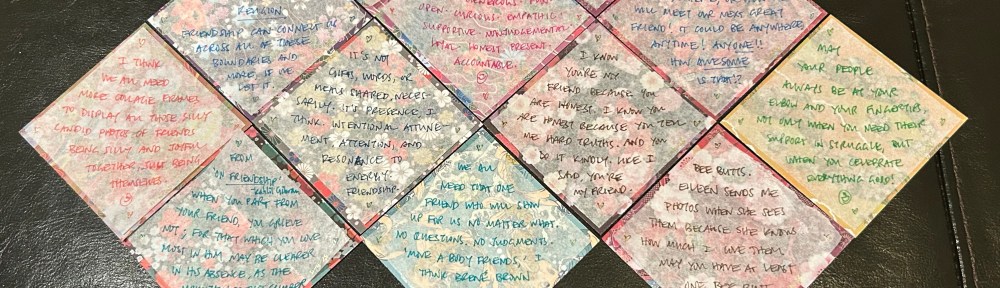 RELIGION
FRIENDSHIP CAN CONNECT US
ACROSS ALL OF THESE
BOUNDARIES AND
MORE, IF WE
LET IT.
OPEN · CURIOUS · EMPATHIC ·
SUPPORTIVE · NONJUDGEMENTAL
LOYAL · HONEST. PRESENT.
ACCOUNTABLE.
WILL MEET OUR NEXT GREAT
FRIEND! IT COULD BE ANYWHERE,
ANYTIME! ANYONE!!
HOW AWESOME
IS THAT!?
I THINK
WE ALL NEED
MORE COLLAGE FRAMES
TO DISPLAY ALL THOSE SILLY
CANDID PHOTOS OF FRIENDS
BEING SILLY AND JOYFUL
TOGETHER, JUST BEING
THEMSELVES.
IT'S NOT
GIFTS, WORDS, OR
MEALS SHARED, NECES-
SARILY. IT'S PRESENCE I
THINK, INTENTIONAL ATTUNE-
MENT, ATTENTION, AND
RESONANCE TO
ENERGY.
FRIENDSHIP.
I KNOW
YOU'RE MY
FRIEND BECAUSE YOU
ARE HONEST. I KNOW YOU
ARE HONEST BECAUSE YOU TELL
ME HARD TRUTHS. AND YOU
DO IT KINDLY. LIKE I
SAID, YOU'RE
MY FRIEND.
MAY
YOUR PEOPLE
ALWAYS BE AT YOUR
ELBOW AND YOUR FINGERTIPS
NOT ONLY WHEN YOU NEED THEIR
SUPPORT IN STRUGGLE, BUT
WHEN YOU CELEBRATE
EVERYTHING GOOD!
FROM
'ON FRIENDSHIP'
-Kahlil Gibran
WHEN YOU PART FROM
YOUR FRIEND, YOU GRIEVE
NOT; FOR THAT WHICH YOU LOVE
MOST IN HIM MAY BE CLEARER
IN HIS ABSENCE, AS THE
WE ALL
NEED THAT ONE
FRIEND WHO WILL SHOW
UP FOR US NO MATTER WHAT.
NO QUESTIONS. NO JUDGMENTS.
MOVE A BODY FRIENDS, I
THINK BRENÉ BROWN
BEE BUTTS.
EILEEN SENDS ME
PHOTOS WHEN SHE SEES
THEM BECAUSE SHE KNOWS
HOW MUCH I LOVE THEM.
MAY YOU HAVE AT LEAST
ONE BEE BUTT